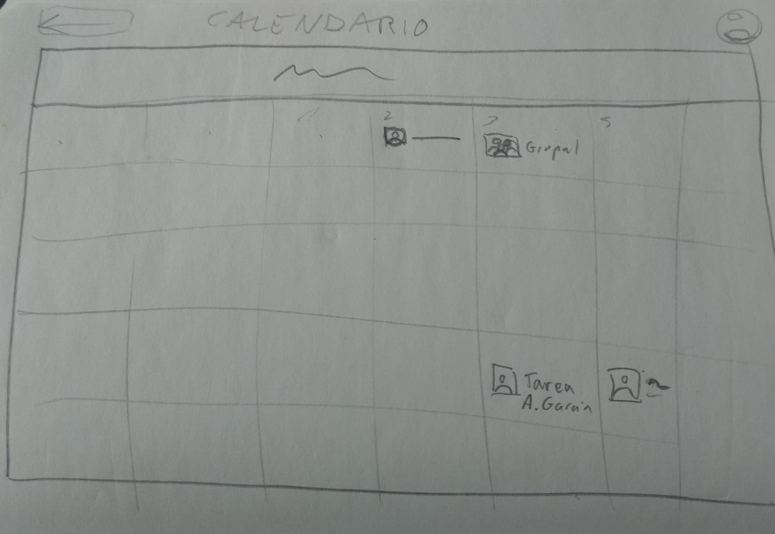 CALENDARIO
2
Grupal
Tarea
A. García